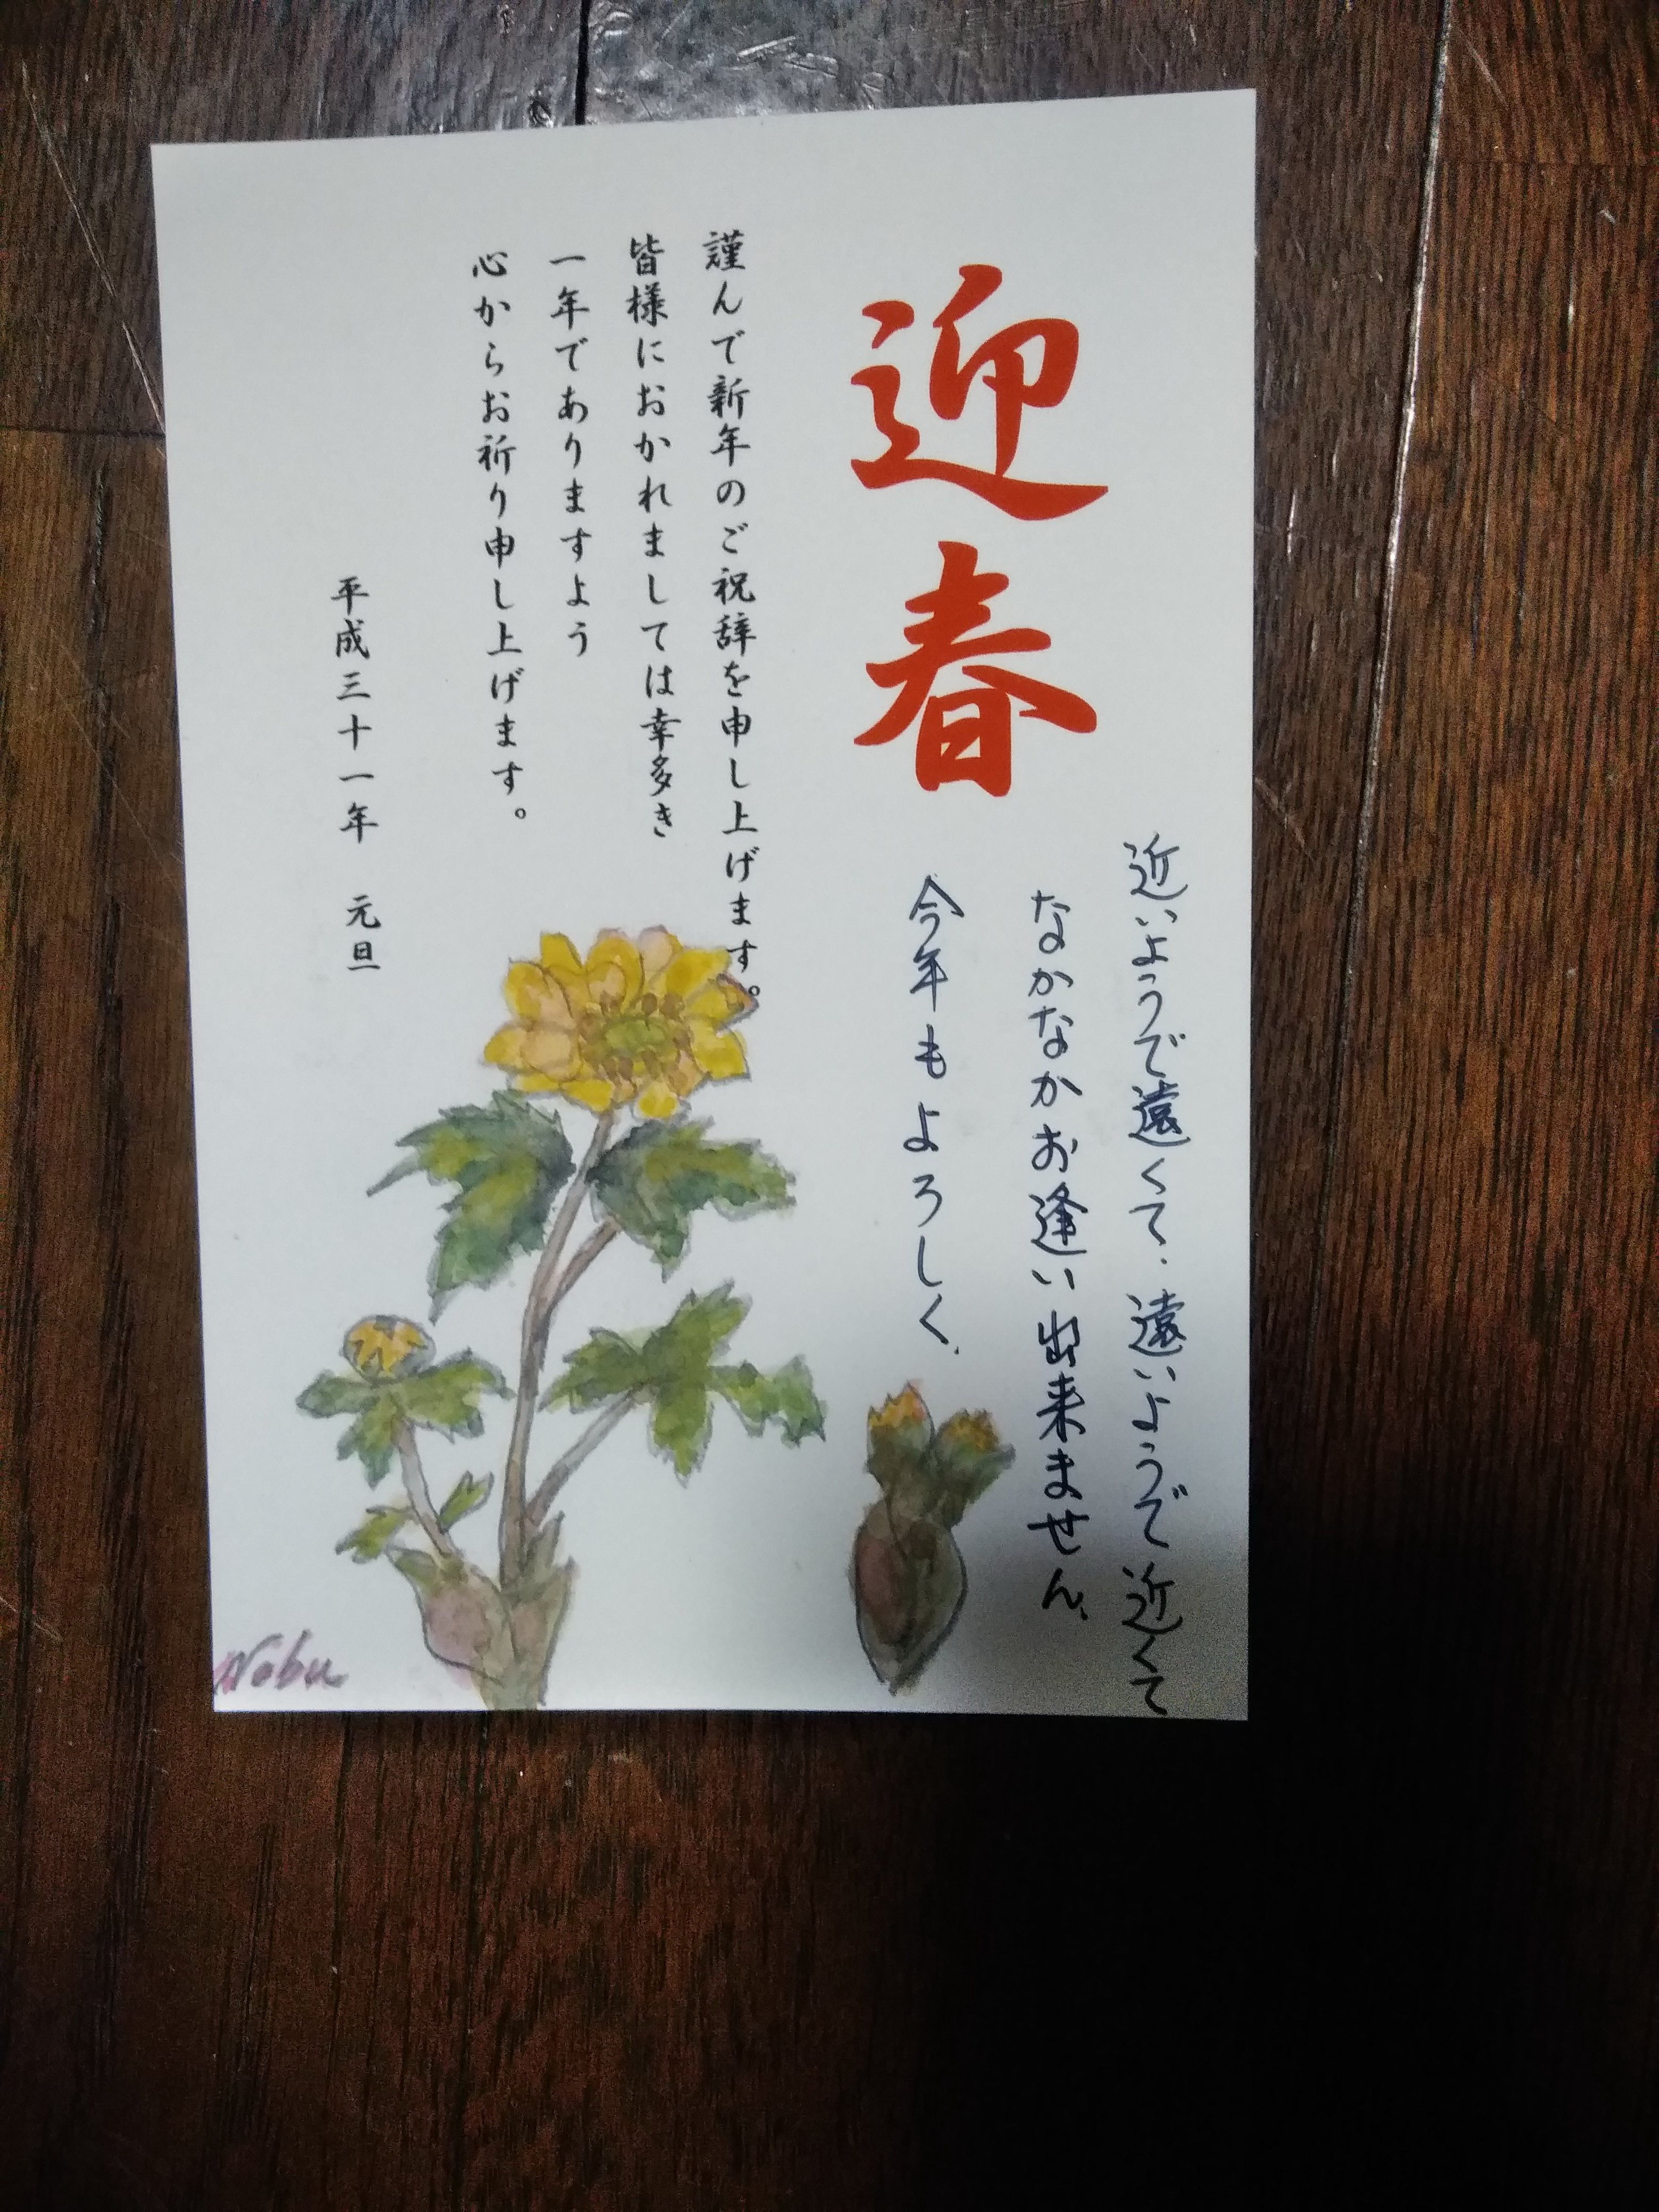 迎春
近いようで遠くて、遠いようで近くて
なかなかお逢い出来ません、
今年もよろしく、
謹んで新年のご祝辞を申し上げます。
皆様におかれましては幸多き
一年でありますよう
心からお祈り申し上げます。
平成三十一年 元旦
Nobu